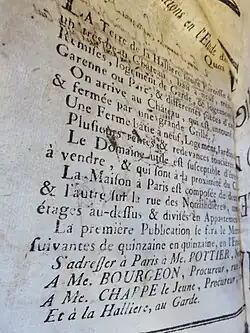 ations en l'Etude
Quai
LA Terre de la Halliere
un très-beau Château
Remises, logement
Garenne ou Parc, & différentes pieces
On arrive au Château, qui est entouré
& fermée par une grande Grille.
Une Ferme bâtie à neuf, Logement, Jardin
Plusieurs rentes & redevances foncieres
Le Domaine utile est susceptible d'être
à vendre, & qui sont à la proximité du
La Maison à Paris est composée de deux
& l'autre sur la rue des Nonaindieres
étages au-dessus & divisés en Appartemens
La premiere Publication se fera le Mar
suivantes de quinzaine en quinzaine, en l'E
S'adresser à Paris à Me. POTTIER, No
A Me. BOURGEON, Procureur, rue
A Me. CHAPPE le Jeune, Procureur,
Et à la Halliere, au Garde.